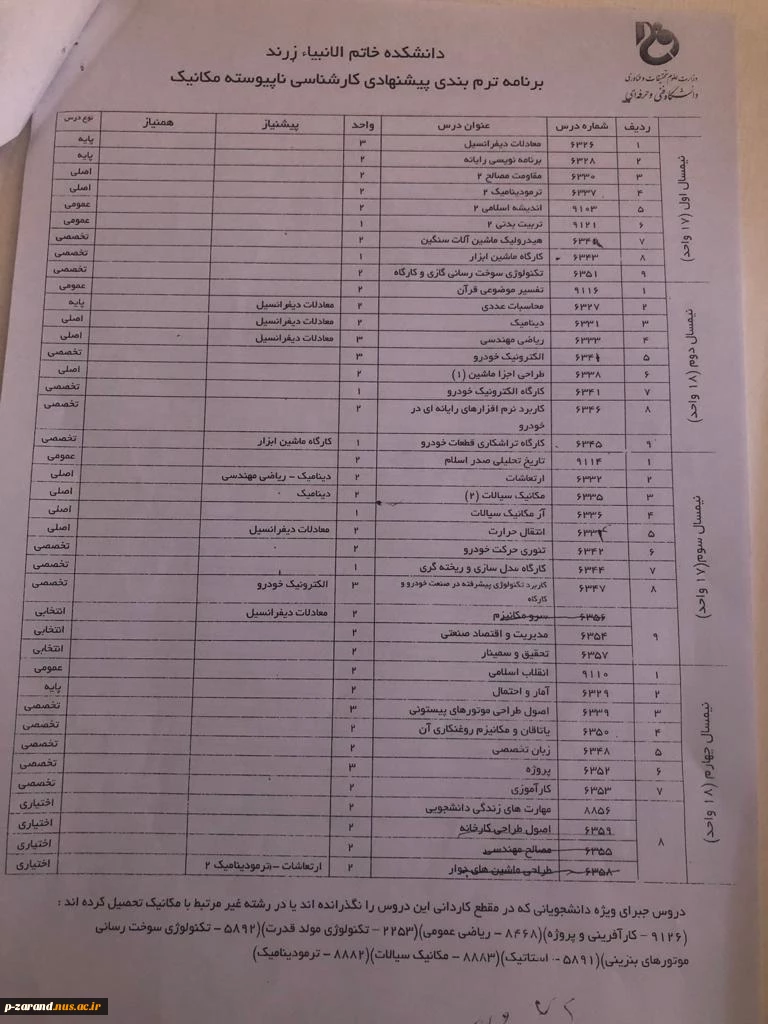 وزارت علوم تحقیقات و فناوری
دانشگاه فنی و حرفه ای
دانشکده خاتم الانبیاء زرند
برنامه ترم بندی پیشنهادی کارشناسی ناپیوسته مکانیک
ردیف شماره درس عنوان درس واحد پیشنیاز همنیاز نوع درس
نیمسال اول (۱۷ واحد)
۱ ۶۳۲۶ معادلات دیفرانسیل ۳ پایه
۲ ۶۳۲۸ برنامه نویسی رایانه ۲ پایه
۳ ۶۳۳۰ مقاومت مصالح ۲ ۲ اصلی
۴ ۶۳۳۷ ترمودینامیک ۲ ۲ اصلی
۵ ۹۱۰۳ اندیشه اسلامی ۲ ۲ عمومی
۶ ۹۱۲۱ تربیت بدنی ۲ ۱ عمومی
۷ هیدرولیک ماشین آلات سنگین ۲ تخصصی
۸ ۶۳۴۳ کارگاه ماشین ابزار ۱ تخصصی
۹ ۶۳۵۱ تکنولوژی سوخت رسانی گازی و کارگاه ۲ تخصصی
نیمسال دوم (۱۸ واحد)
۱ ۹۱۱۶ تفسیر موضوعی قرآن ۲ عمومی
۲ ۶۳۲۷ محاسبات عددی ۲ معادلات دیفرانسیل پایه
۳ ۶۳۳۱ دینامیک ۲ معادلات دیفرانسیل اصلی
۴ ۶۳۳۳ ریاضی مهندسی ۳ معادلات دیفرانسیل اصلی
۵ الکترونیک خودرو ۳ تخصصی
۶ ۶۳۳۸ طراحی اجزا ماشین (۱) ۲ اصلی
۷ ۶۳۴۱ کارگاه الکترونیک خودرو ۱ تخصصی
۸ ۶۳۴۶ کاربرد نرم افزارهای رایانه ای در ۲ تخصصی
خودرو
۹ ۶۳۴۵ کارگاه تراشکاری قطعات خودرو ۱ کارگاه ماشین ابزار تخصصی
نیمسال سوم(۱۷ واحد)
۱ ۹۱۱۴ تاریخ تحلیلی صدر اسلام ۲ عمومی
۲ ۶۳۳۲ ارتعاشات ۲ دینامیک - ریاضی مهندسی اصلی
۳ ۶۳۳۵ مکانیک سیالات (۲) ۲ دینامیک اصلی
۴ ۶۳۳۶ آز مکانیک سیالات ۱ اصلی
۵ انتقال حرارت ۲ معادلات دیفرانسیل اصلی
۶ ۶۳۴۲ تئوری حرکت خودرو ۲ تخصصی
۷ ۶۳۴۴ کارگاه مدل سازی و ریخته گری ۱ تخصصی
۸ ۶۳۴۷ کاربرد تکنولوژی پیشرفته در صنعت خودرو و ۳ الکترونیک خودرو تخصصی
کارگاه
۹ ۶۳۵۶ سرو مکانیزم ۲ معادلات دیفرانسیل انتخابی
۶۳۵۴ مدیریت و اقتصاد صنعتی ۲ انتخابی
۶۳۵۷ تحقیق و سمینار ۲ انتخابی
نیمسال چهارم (۱۸ واحد)
۱ ۹۱۱۰ انقلاب اسلامی ۲ عمومی
۲ ۶۳۲۹ آمار و احتمال ۲ پایه
۳ ۶۳۳۹ اصول طراحی موتورهای پیستونی ۳ تخصصی
۴ ۶۳۵۰ یاتاقان و مکانیزم روغنکاری آن ۲ تخصصی
۵ ۶۳۴۸ زبان تخصصی ۲ تخصصی
۶ ۶۳۵۲ پروژه ۳ تخصصی
۷ ۶۳۵۳ کارآموزی ۲ تخصصی
۸ ۸۸۵۶ مهارت های زندگی دانشجویی ۲ اختیاری
۶۳۵۹ اصول طراحی کارخانه ۲ اختیاری
۶۳۵۵ مصالح مهندسی ۲ اختیاری
۶۳۵۸ طراحی ماشین های دوار ۲ ارتعاشات - ترمودینامیک ۲ اختیاری
دروس جبرای ویژه دانشجویانی که در مقطع کاردانی این دروس را نگذرانده اند یا در رشته غیر مرتبط با مکانیک تحصیل کرده اند :
(۹۱۲۶ - کارآفرینی و پروژه)(۸۴۶۸ - ریاضی عمومی)(۲۲۵۳ - تکنولوژی مولد قدرت)(۵۸۹۲ - تکنولوژی سوخت رسانی
موتورهای بنزینی)(۵۸۹۱ - استاتیک)(۸۸۸۳ - مکانیک سیالات)(۸۸۸۲ - ترمودینامیک)
p-zarand.nus.ac.ir